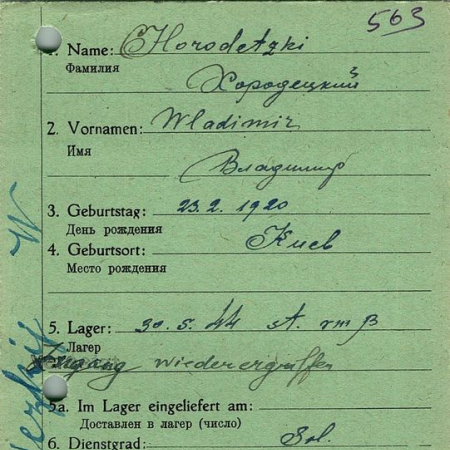 563
1. Name: Chorodetzki
Фамилия
Хородецкий
2. Vornamen: Wladimir
Имя
Владимир
3. Geburtstag: 23.2.1920
День рождения
4. Geburtsort: Киев
Место рождения
5. Lager: 30.5.44 st. VIII B
Лагер
Zugang wiederergriffen
5a. Im Lager eingeliefert am:
Доставлен в лагер (число)
6. Dienstgrad: Sol.